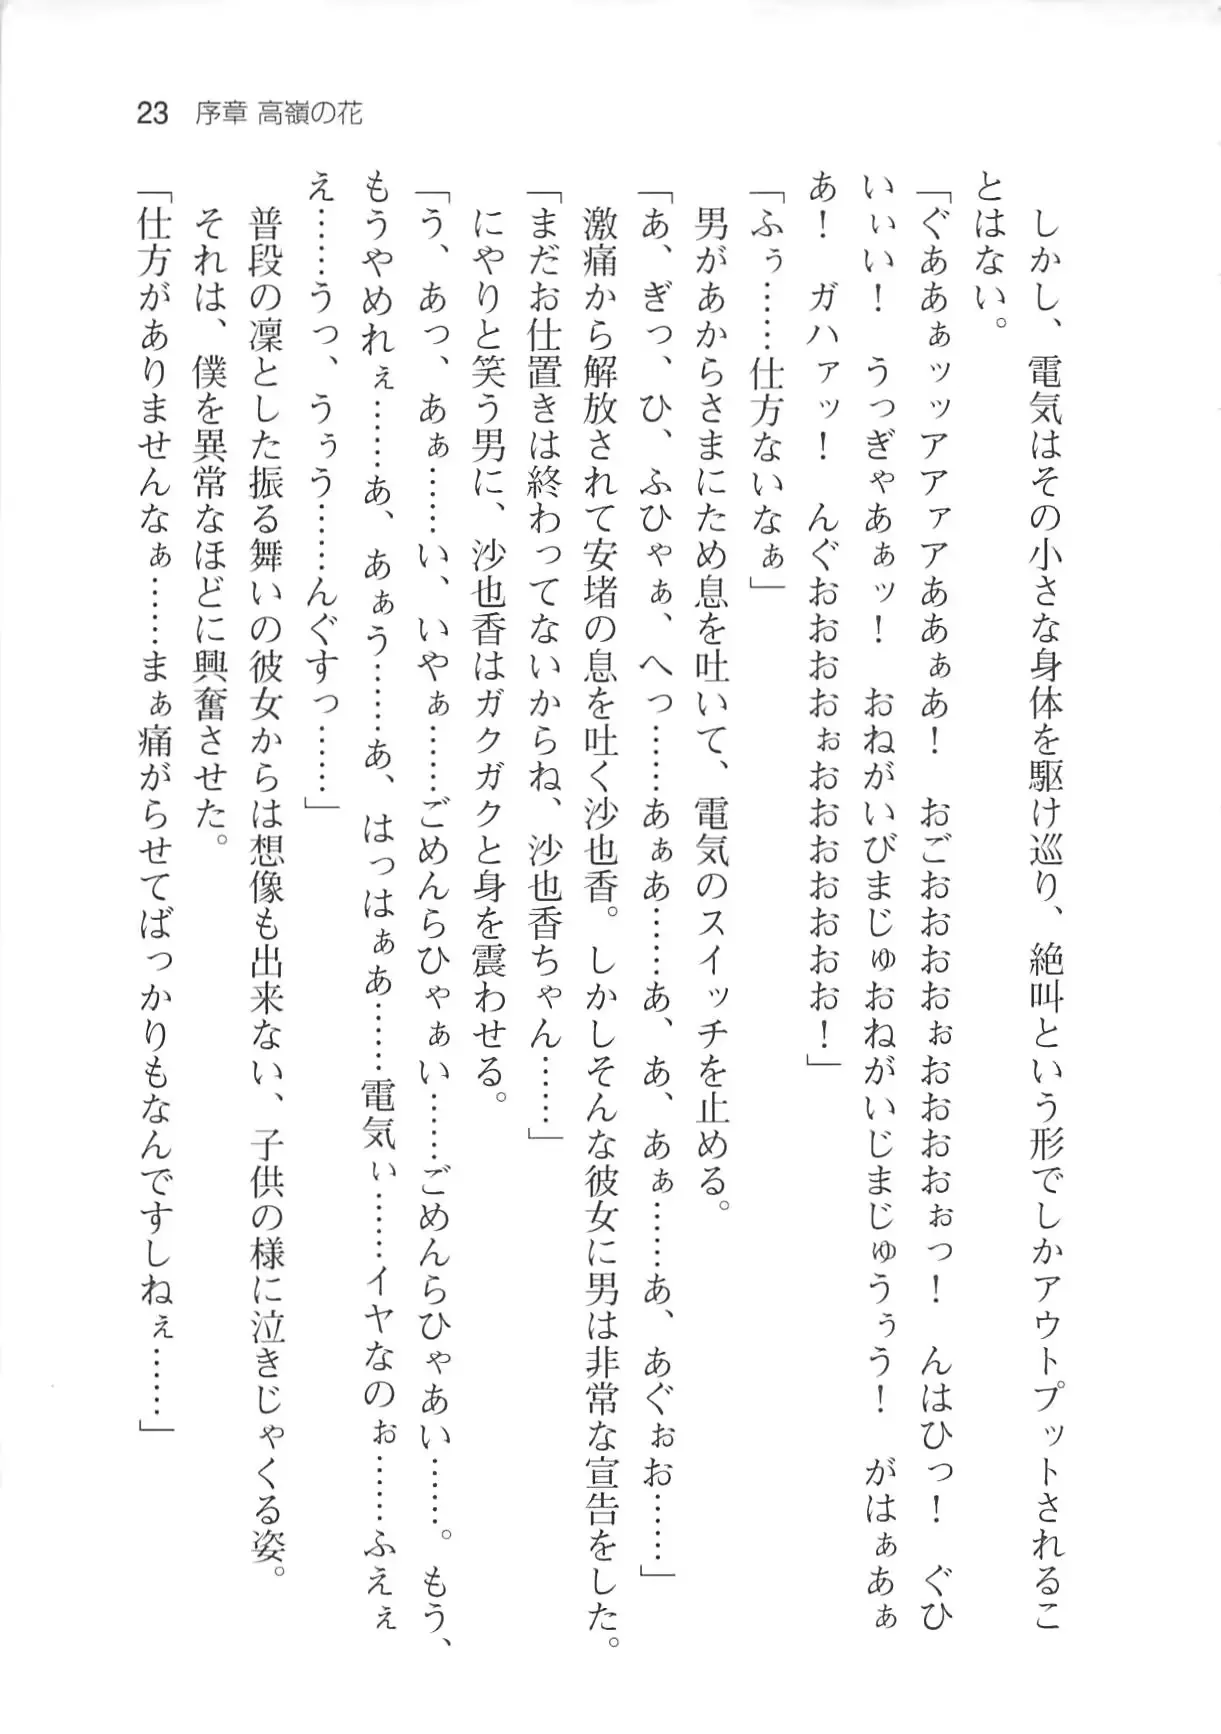 23 序章 高嶺の花
しかし、電気はその小さな身体を駆け巡り、絶叫という形でしかアウトプットされるこ
とはない。
「ぐああぁッッアアァアああぁあ！　おごおおおおぉおおおおぉっ！　んはひっ！　ぐひ
いぃい！　うっぎゃあぁッ！　おねがいびまじゅおねがいじまじゅうぅう！　がはぁあぁ
あ！　ガハァッ！　んぐおおおおぉおおおおおおお！」
「ふぅ……仕方ないなぁ」
男があからさまにため息を吐いて、電気のスイッチを止める。
「あ、ぎっ、ひ、ふひゃぁ、へっ……あぁあ……あ、あ、あぁ……あ、あぐぉお……」
激痛から解放されて安堵の息を吐く沙也香。しかしそんな彼女に男は非常な宣告をした。
「まだお仕置きは終わってないからね、沙也香ちゃん……」
にやりと笑う男に、沙也香はガクガクと身を震わせる。
「う、あっ、あぁ……い、いやぁ……ごめんらひゃぁい……ごめんらひゃあい……。もう、
もうやめれぇ……あ、あぁう……あ、はっはぁあ……電気ぃ……イヤなのぉ……ふえぇ
え……うっ、うぅう……んぐすっ……」
普段の凛とした振る舞いの彼女からは想像も出来ない、子供の様に泣きじゃくる姿。
それは、僕を異常なほどに興奮させた。
「仕方がありませんなぁ……まぁ痛がらせてばっかりもなんですしねぇ……」